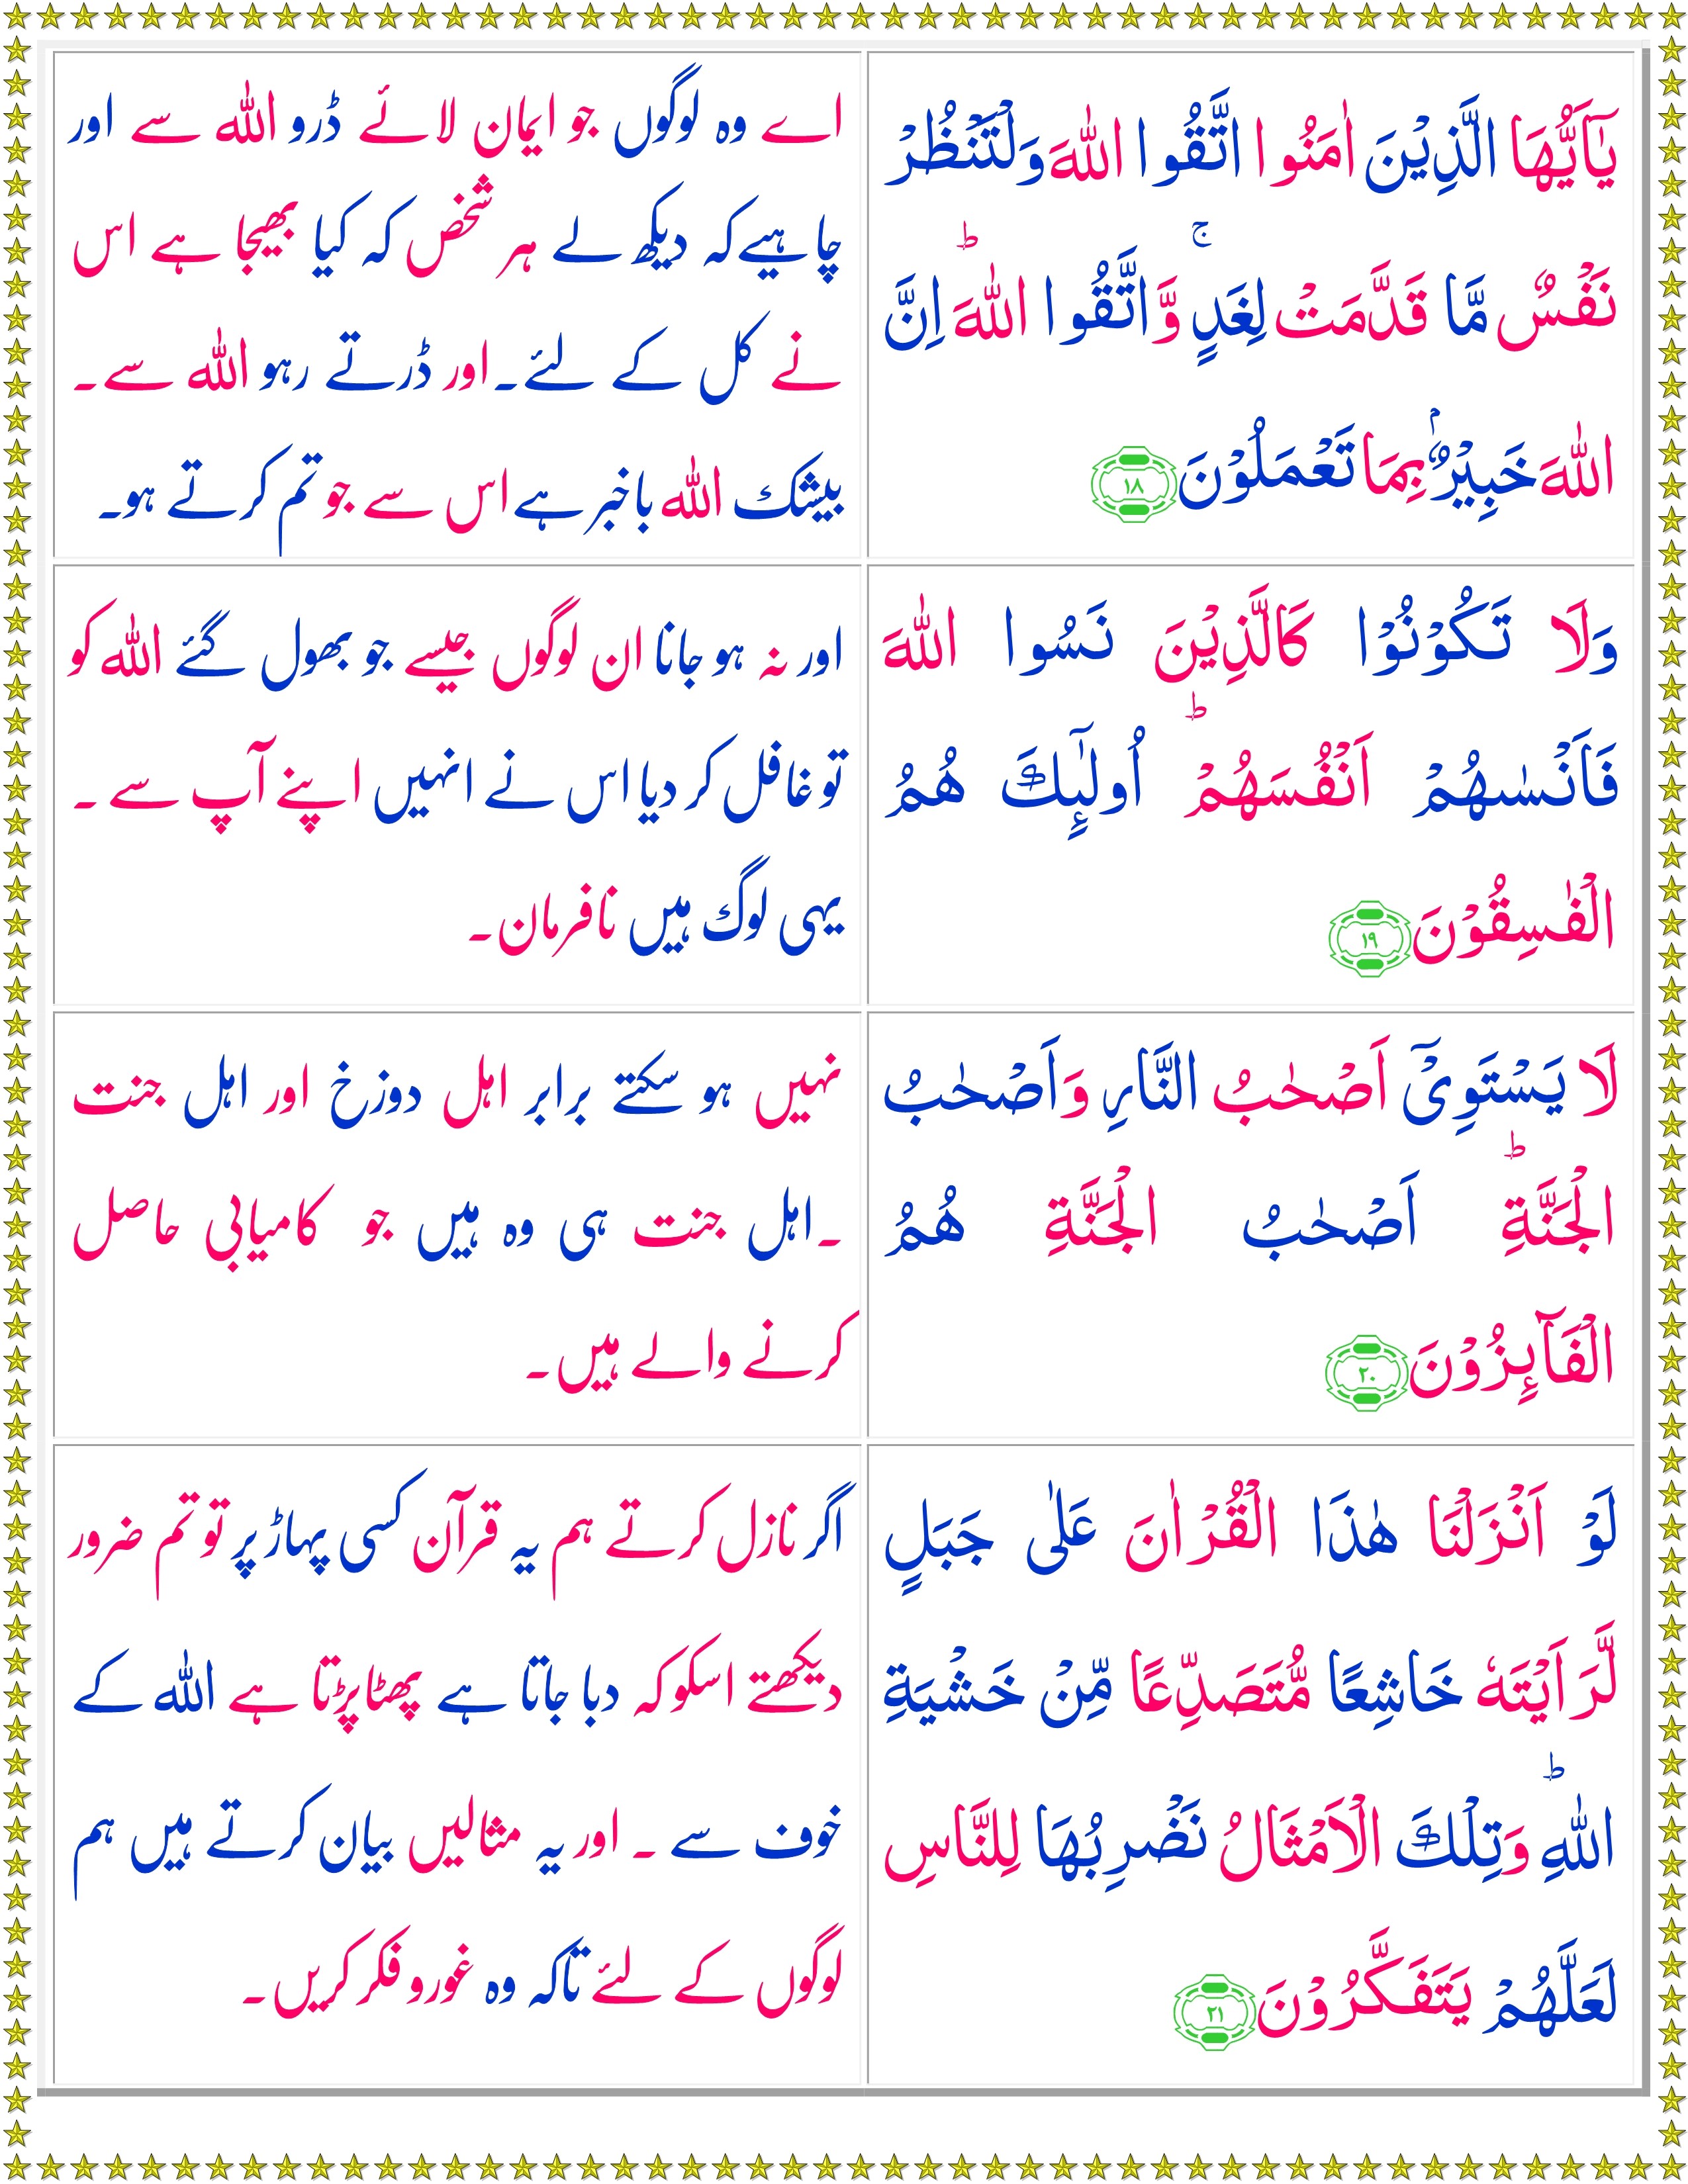 يٰۤاَيُّهَا الَّذِيْنَ اٰمَنُوا اتَّقُوا اللّٰهَ وَلْتَنْظُرْ
نَفْسٌ مَّا قَدَّمَتْ لِغَدٍ ۚ وَّاتَّقُوا اللّٰهَ ؕ اِنَّ
اللّٰهَ خَبِيْرٌۢ بِمَا تَعْمَلُوْنَ ۱۸
اے وہ لوگوں جو ایمان لائے ڈرو اللہ سے اور
چاہیے کہ دیکھ لے ہر شخص کہ کیا بھیجا ہے اس
نے کل کے لئے۔ اور ڈرتے رہو اللہ سے۔
بیشک اللہ باخبر ہے اس سے جو تم کرتے ہو۔
وَلَا تَكُوْنُوْا كَالَّذِيْنَ نَسُوا اللّٰهَ
فَاَنْسٰىهُمْ اَنْفُسَهُمْ ؕ اُولٰٓئِكَ هُمُ
الْفٰسِقُوْنَ ۱۹
اور نہ ہو جانا ان لوگوں جیسے جو بھول گئے اللہ کو
تو غافل کر دیا اس نے انہیں اپنے آپ سے ۔
یہی لوگ ہیں نافرمان۔
لَا يَسْتَوِىْۤ اَصْحٰبُ النَّارِ وَاَصْحٰبُ
الْجَنَّةِ ؕ اَصْحٰبُ الْجَنَّةِ هُمُ
الْفَآئِزُوْنَ ۲۰
نہیں ہو سکتے برابر اہل دوزخ اور اہل جنت
۔ اہل جنت ہی وہ ہیں جو کامیابی حاصل
کرنے والے ہیں۔
لَوْ اَنْزَلْنَا هٰذَا الْقُرْاٰنَ عَلٰى جَبَلٍ
لَّرَاَيْتَهٗ خَاشِعًا مُّتَصَدِّعًا مِّنْ خَشْيَةِ
اللّٰهِ ؕ وَتِلْكَ الْاَمْثَالُ نَضْرِبُهَا لِلنَّاسِ
لَعَلَّهُمْ يَتَفَكَّرُوْنَ ۲۱
اگر نازل کرتے ہم یہ قرآن کسی پہاڑ پر تو تم ضرور
دیکھتے اسکو کہ دبا جاتا ہے پھٹا پڑتا ہے اللہ کے
خوف سے ۔ اور یہ مثالیں بیان کرتے ہیں ہم
لوگوں کے لئے تاکہ وہ غور و فکر کریں۔